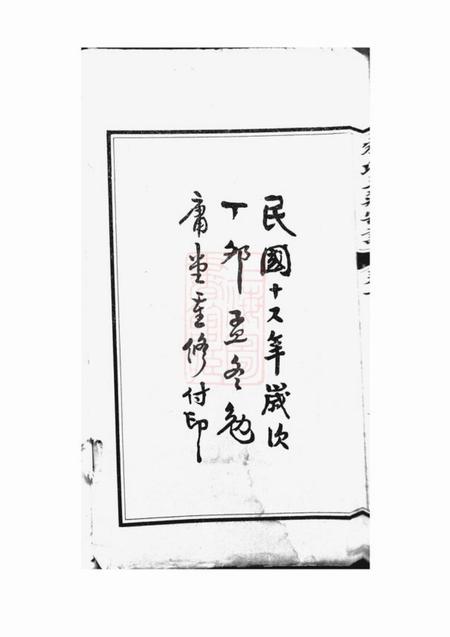 民國十六年歲次
丁卯孟冬勉
庸堂重修付印